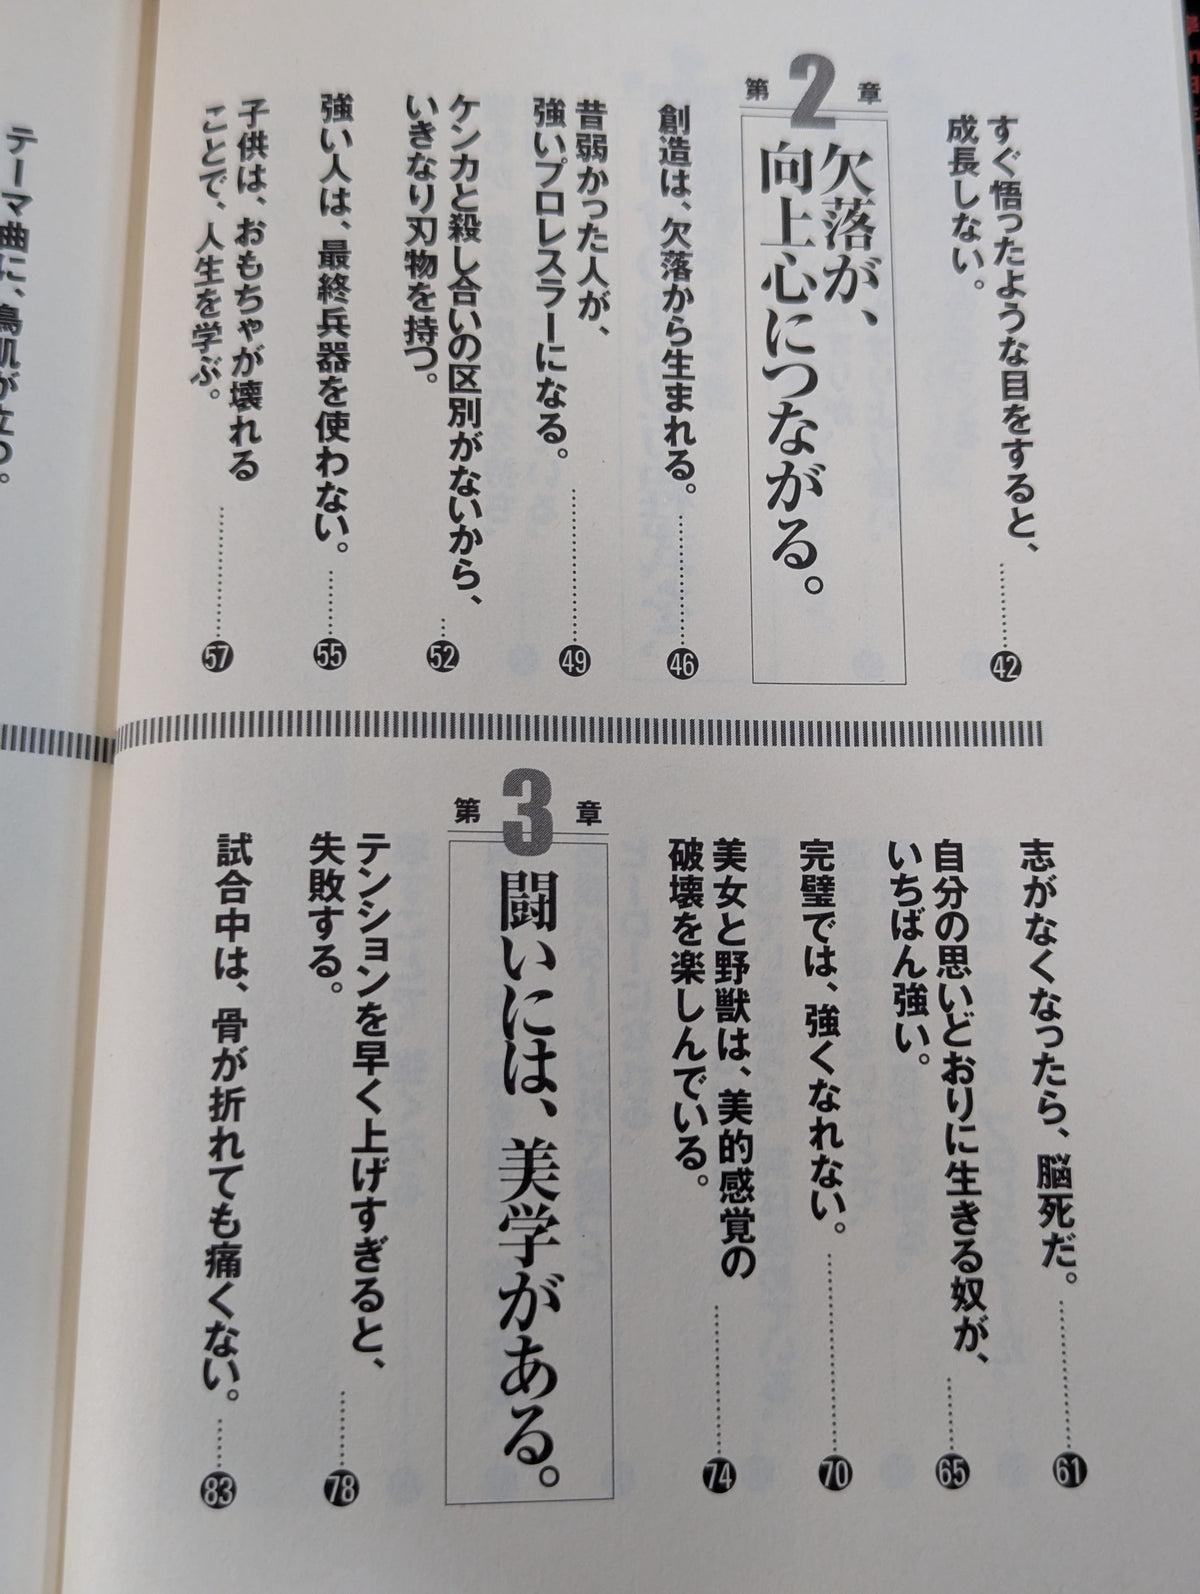 すぐ悟ったような目をすると、
成長しない。
42
第2章
欠落が、
向上心につながる。
創造は、欠落から生まれる。
46
昔弱かった人が、
強いプロレスラーになる。
49
ケンカと殺し合いの区別がないから、
いきなり刃物を持つ。
52
強い人は、最終兵器を使わない。
55
子供は、おもちゃが壊れる
ことで、人生を学ぶ。
57
志がなくなったら、脳死だ。
61
自分の思いどおりに生きる奴が、
いちばん強い。
65
完璧では、強くなれない。
70
美女と野獣は、美的感覚の
破壊を楽しんでいる。
74
第3章
闘いには、美学がある。
テンションを早く上げすぎると、
失敗する。
78
試合中は、骨が折れても痛くない。
83
テーマ曲に、鳥肌が立つ。